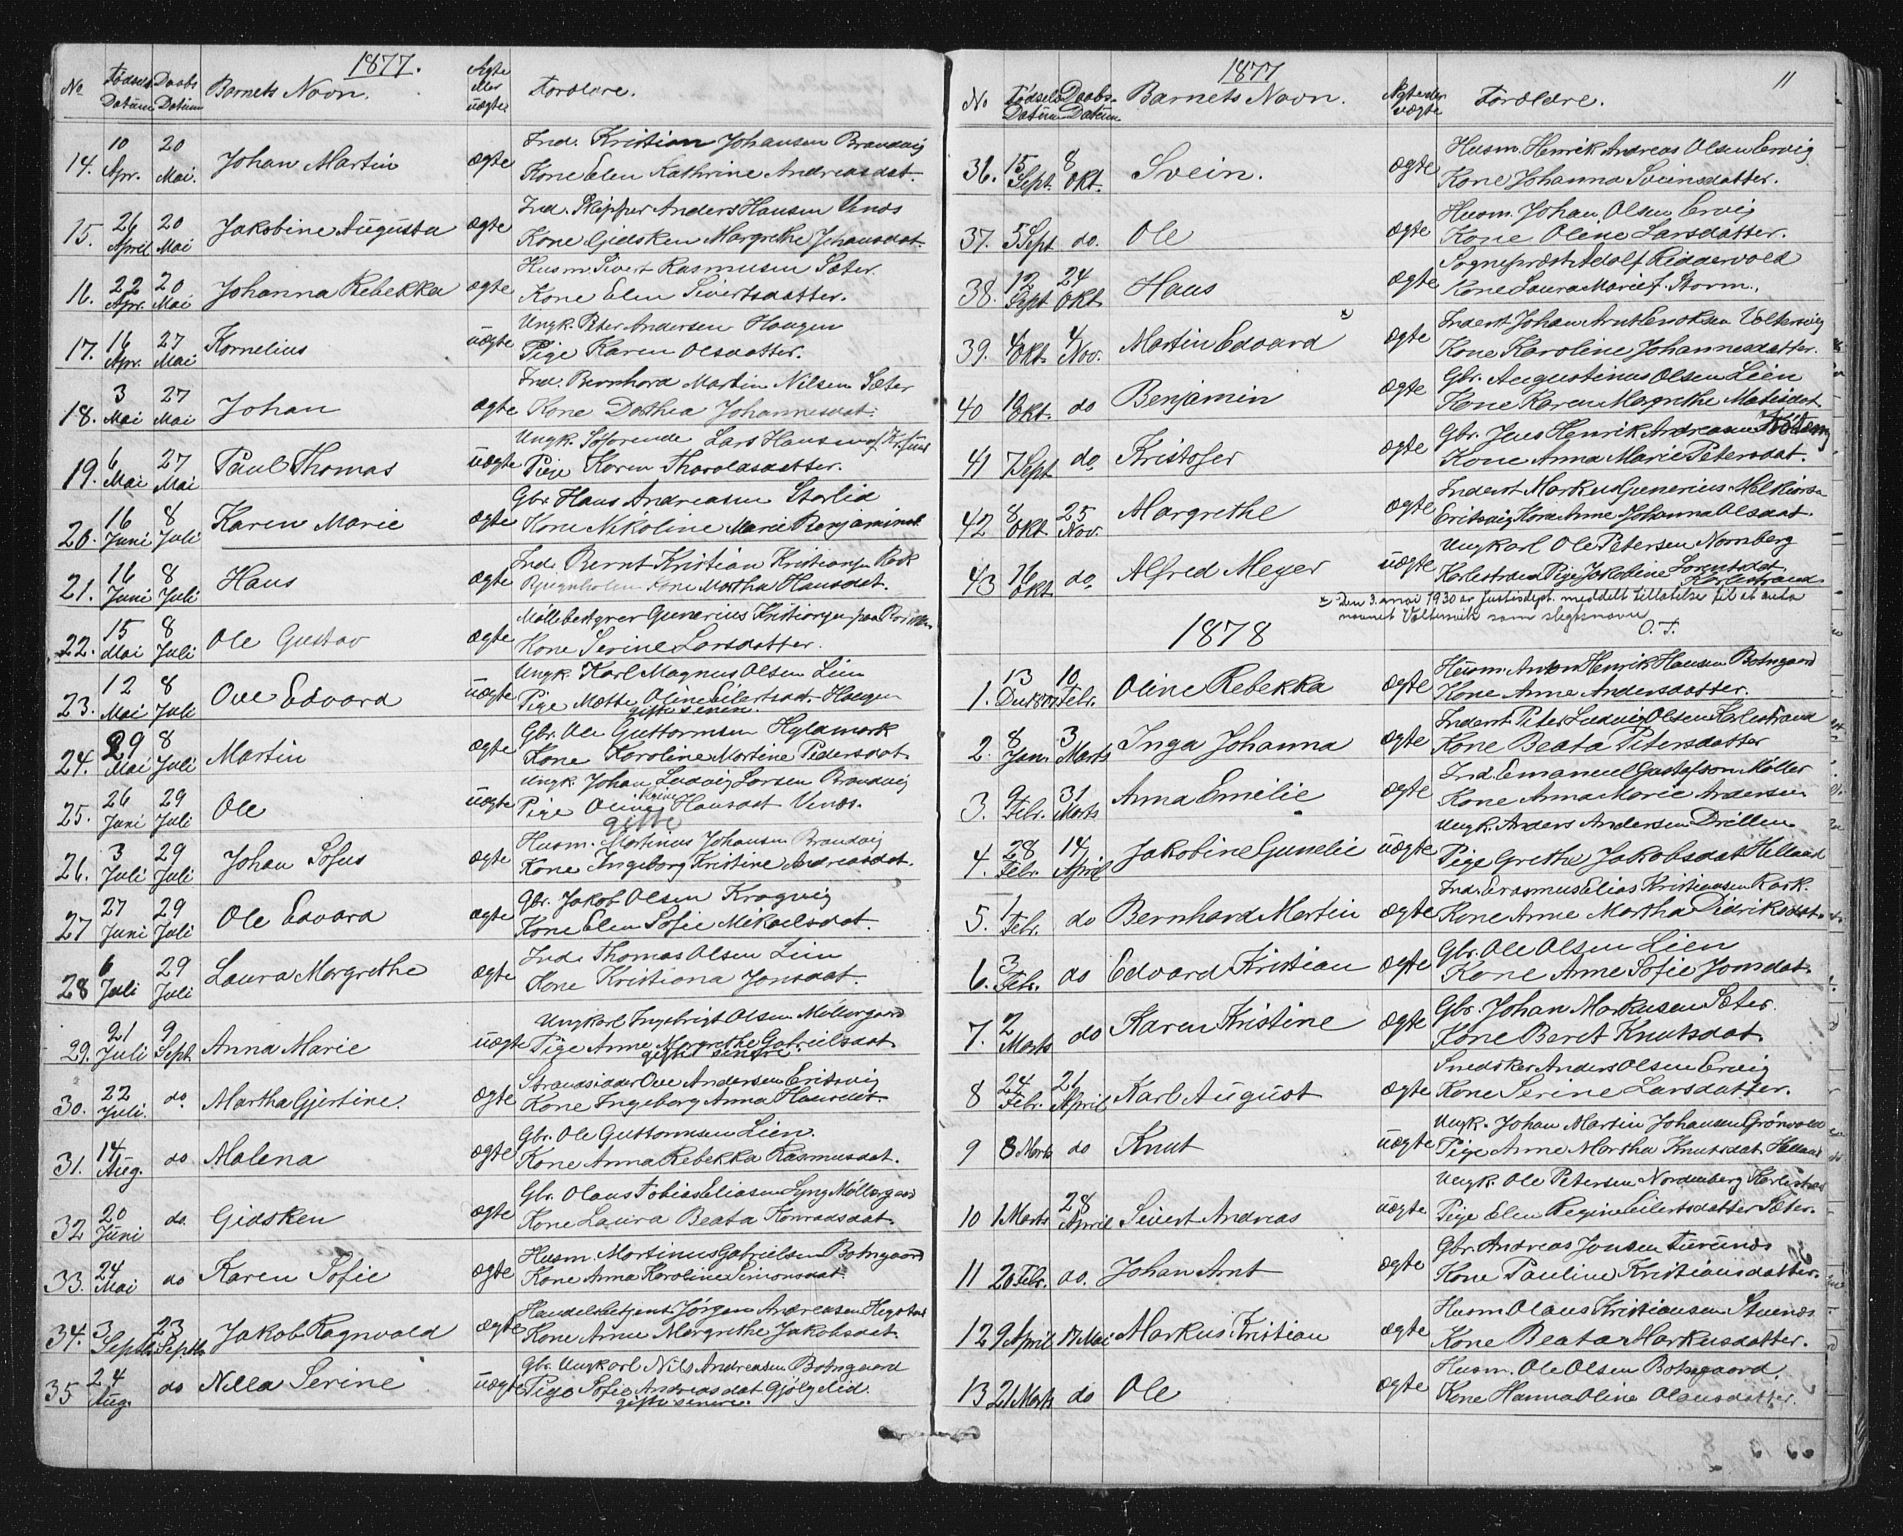 1877.
No Fødsels Datum Daabs Datum Barnets Navn. Ægte eller uægte Forældre.
14. 10 Apr. 20 Mai. Johan Martin ægte Ind. Kristian Johansen Brandvig
Kone Elen Kathrine Andreasdat.
15. 26 April 20 Mai Jakobine Augusta ægte Ind. Skipper Anders Hansen Vinds
Kone Gidsken Margrethe Johansdat.
16. 22 Apr. 20 Mai Johanna Rebekka ægte Husm. Sivert Rasmusen Sæter.
Kone Elen Sivertsdatter.
17. 16 Apr. 27 Mai Kornelius uægte Ungk. Peter Andersen Haugen
Pige Karen Olsdatter.
18. 3 Mai 27 Mai Johan ægte Ind. Bernhard Martin Nilsen Sæter
Kone Dorthea Johannesdat.
19. 6 Mai 27 Mai Paul Thomas uægte Ungk. Søfarende Lars Hansen af Kr.sund
Pige Karen Tharaldsdatter.
20. 16 Juni 8 Juli Karen Marie ægte Gbr. Hans Andreasen Storlid
Kone Nikoline Marie Benjaminsd.
21. 16 Juni 8 Juli Hans ægte Ind. Bernt Kristian Kristiansen Rok
Kone Martha Hansdat.
22. 15 Mai 8 Juli Ole Gustav ægte Møllebestyrer Gunerius Kristiansen paa
Kone Serine Larsdatter.
23. 12 Mai 8 Juli Ove Edvard uægte Ungk. Karl Magnus Olsen Lien
Pige Mette Oline Eilertsdat. Haugen
gifte senere.
24. 29 Mai 8 Juli Martin ægte Gbr. Ole Guttormsen Hyldmork
Kone Karoline Martine Pedersdat.
25. 26 Juni 29 Juli Ole uægte Ungk. Johan Ludvig Larsen Brandvig
Pige Oline Hansdat Vinds.
gifte
26. 3 Juli 29 Juli Johan Sofus ægte Husm. Martinus Johansen Brandvig
Kone Ingeborg Kristine Andreasdat.
27 27 Juni 29 Juli Ole Edvard ægte Gbr. Jakob Olsen Krogvig
Kone Elen Sofie Mekaelsdat.
28 6 Juli 29 Juli Laura Margrethe ægte Ind. Thomas Olsen Lien
Kone Kristiana Jonsdat.
29. 21 Juli 9 Sept. Anna Marie uægte Ungkarl Ingebrigt Olsen Møllergaard
Pige Anne Margrethe Gabrielsdat.
gifte senere.
30. 22 Juli. do. Martha Gjertine. ægte Strandsidder Ove Andersen Eritsvig
Kone Ingeborg Anna Hansdat.
31. 14 Aug. do Malena ægte Gbr. Ole Guttormsen Lien.
Kone Anna Rebekka Rasmusdat.
32 20 Juni do. Gidsken ægte Gbr. Olaus Tobias Eliasen Lyng Møllergaard
Kone Laura Beata Konradsdat.
33. 24 Mai do Karen Sofie ægte Husm. Martinus Gabrielsen Botngaard
Kone Anna Karoline Simonsdat.
34. 3 Septb. 23 Septb. Jakob Ragnvald ægte Handelsbetjent Jørgen Andreasen
Kone Anne Margrethe Jakobsdat.
35 24 Aug. do Nella Serine uægte Gbr. Ungkarl Nils Andreasen Botngaard
Pige Sofie Andreasdat Gjølgelid.
gifte senere.
1877 11
No. Fødsels Datum Daabs Datum Barnets Navn. Ægte eller uægte Forældre.
36. 15 Sept. 8 Okt. Svein. ægte Husm. Henrik Andreas Olsen Ervig
Kone Johanna Sveinsdatter.
37. 5 Sept. do. Ole ægte Husm. Johan Olsen Ervig
Kone Oline Larsdatter.
38. 12 Sept 24 Okt. Hans ægte Sognepræst Adolf Riddervold
Kone Laura Marie f. Storm.
39. 4 Okt. 4 Nov. Martin Edvard x) ægte Inderst Johan Arnt Enoksen Voltersvig
Kone Karoline Johannesdatter.
40 10 Okt. do Benjamin ægte Gbr. Augustinus Olsen Lien
Kone Karen Magrethe Matisdat.
41 7 Sept. do. Kristofer ægte Gbr. Jens Henrik Andreasen
Kone Anna Marie Petersdat.
42 8 Okt. 25 Nov. Margrethe ægte Inderst Markus Gunerius Melkiorsen
Eritsvig Kone Anne Johanna Olsdat.
43 16 Okt. do. Alfred Meyer uægte Ungkarl Ole Petersen Nornberg
Karlestrand Pige Jakobine Lorentsdat
Karlestrand
x) Den 3. mai 1930 er Justisdept. meddelt tillatelse til at anta
navnet Valtersvik som slegtsnavn.
O.F.
1878
1. 13 Dec 1877 10 Febr. Oline Rebekka ægte Husm. Anton Henrik Hansen Botngaard
Kone Anne Andersdatter.
2. 8 Jan. 3 Marts Inga Johanna ægte Inderst Peter Ludvig Olsen Karlestrand
Kone Beata Petersdatter
3. 9 Febr. 31 Marts Anna Emelie ægte Ind. Emanuel Gustafson Møller
Kone Anna Marie Andersen
4. 28 Febr. 14 April Jakobine Gunelie uægte Ungk. Anders Andersen Drillen
Pige Grethe Jakobsdat Helland
5. 1 Febr. do Bernhard Martin ægte Ind. Erasmus Elias Kristiansen Rok.
Kone Anne Martha Didriksdat.
6. 3 Febr. do Edvard Kristian ægte Gbr. Ole Olsen Lien
Kone Anne Sofie Jonsdat.
7. 2 Marts do Karen Kristine ægte Gbr. Johan Markusen Sæter.
Kone Beret Knutsdat.
8 24 Febr. 21 April Karl August ægte Smedsker Anders Olsen Ervig
Kone Serine Larsdatter.
9 8 Marts do Knut uægte Ungk. Johan Martin Johansen Grønvold
Pige Anne Martha Knutsdat Helland
10 1 Marts 28 April Sivert Andreas uægte Ungk. Ole Petersen Nordenberg Karlestrand
Pige Elen Regine Eilertsdatter Sæter.
11 20 Febr. do. Johan Arnt ægte Gbr. Andreas Jonsen Furunds
Kone Pauline Kristiansdatter.
12 9 April 17 Mai Markus Kristian ægte Husm. Olaus Kristiansen Stuends
Kone Beata Markusdatter.
13 21 Marts do Ole ægte Husm. Ole Olsen Botngaard.
Kone Hanna Oline Olausdatter.